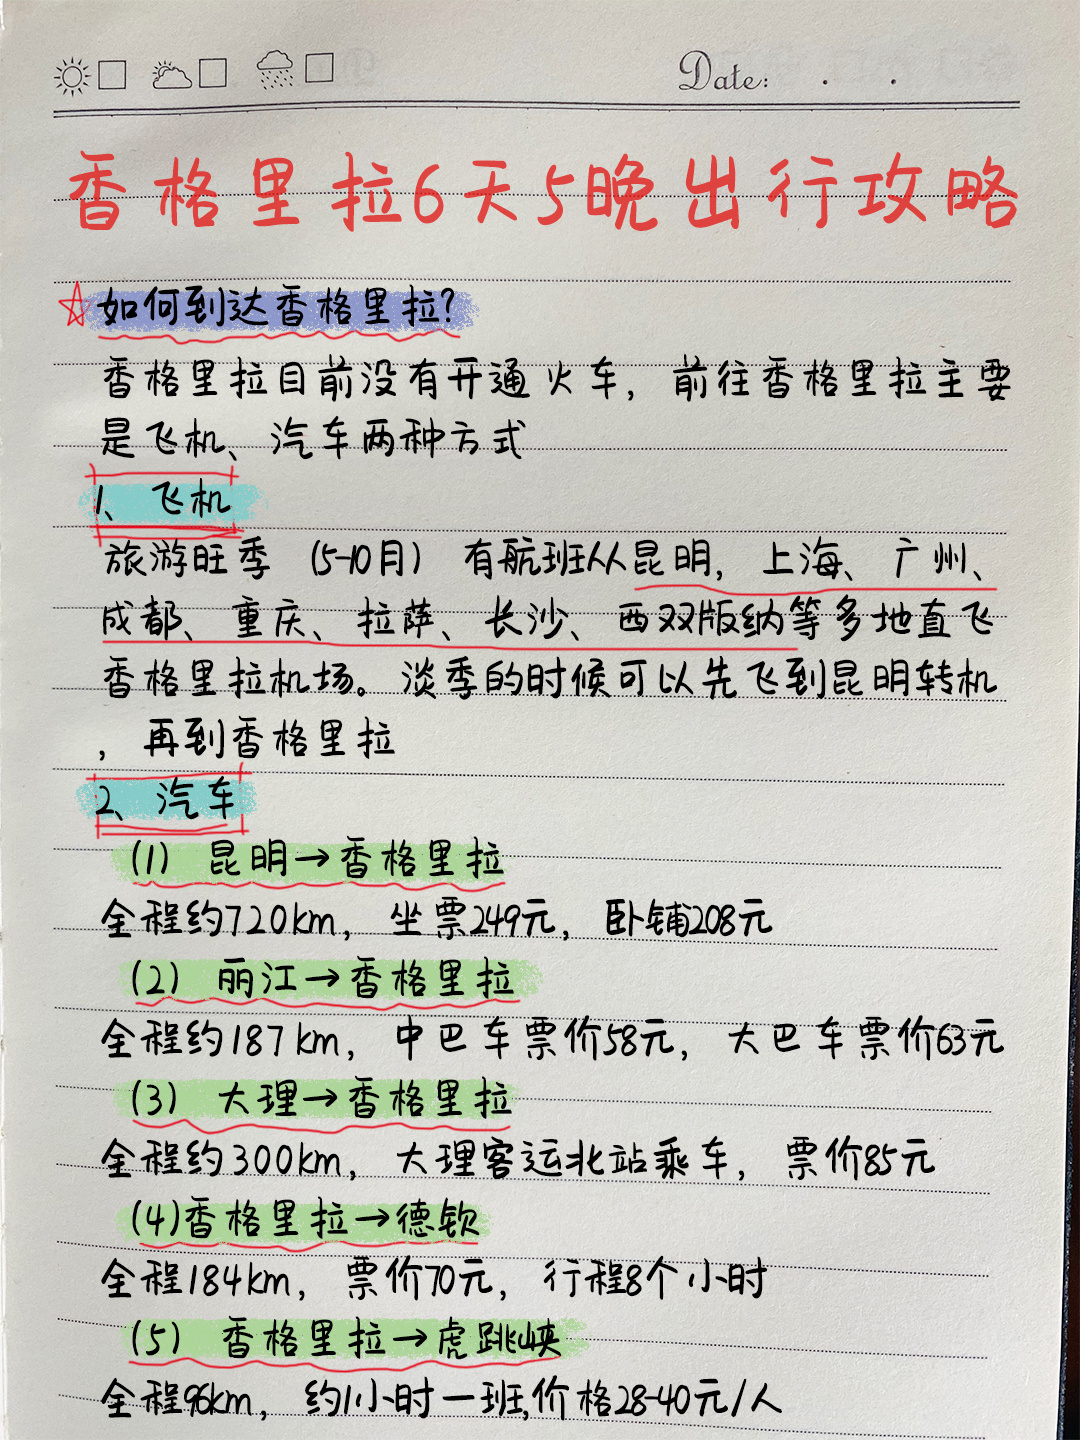 Date:
香格里拉6天5晚出行攻略
如何到达香格里拉?
香格里拉目前没有开通火车，前往香格里拉主要
是飞机、汽车两种方式
1、飞机
旅游旺季（5-10月）有航班从昆明，上海、广州、
成都、重庆、拉萨、长沙、西双版纳等多地直飞
香格里拉机场。淡季的时候可以先飞到昆明转机
，再到香格里拉
2、汽车
(1) 昆明→香格里拉
全程约720km，坐票249元，卧铺208元
(2) 丽江→香格里拉
全程约187km，中巴车票价58元，大巴车票价63元
(3) 大理→香格里拉
全程约300km，大理客运北站乘车，票价85元
(4)香格里拉→德钦
全程184km，票价70元，行程8个小时
(5) 香格里拉→虎跳峡
全程96km，约1小时一班,价格28-40元/人